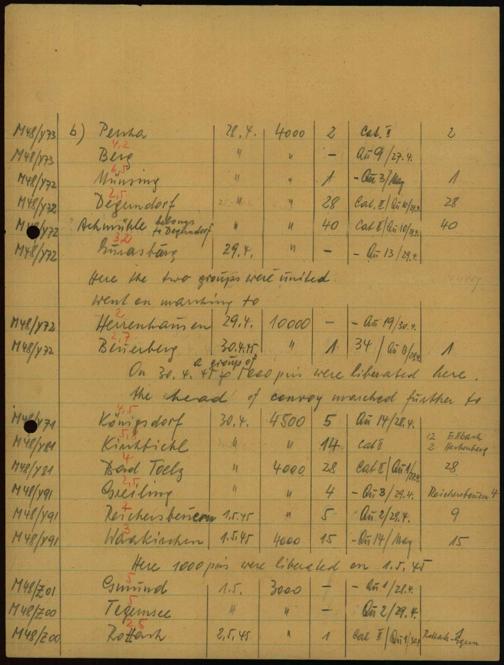 M48/Y73 b) Percha 28.4. 4000 2 Cat. II 2
4,2
M48/Y73 Berg " " - - Au 9/27.4.
6,5
M48/Y72 Münsing " " 1 - Au 3/May 1
2,5
M48/Y72 Degerndorf " " 28 Cat. II/Au 28
M48/Y72 Achmühle belongs to Degerndorf " 40 Cat II/Au 10 40
3,2
M48/Y72 Eurasburg 29.4. " - - Au 13/29.4.
Here the two groups were united
went on marching to
2
M48/Y72 Herrenhausen 29.4. 10000 - - Au 19/30.4.
2,7
M48/Y72 Beuerberg 30.4.45 " 1 34/Au 1
a group of
On 30.4.45 5000 pris were liberated here.
the head of convoy marched further to
4,5
M48/Y71 Königsdorf 30.4. 4500 5 Au 14/28.4.
M48/Y81 Kirchbichl " " 14 Cat II 12 Ellbach
2 Hechenberg
4
M48/Y81 Bad Toelz " 4000 28 Cat II/Au 1 28
2,5
M48/Y91 Greiling " " 4 - Au 3/29.4. Reichersbeuern 4
4
M48/Y91 Reichersbeuern 1.5.45 " 5 Au 2/29.4. 9
M48/Y91 Waakirchen 1.5.45 4000 15 - Au 14/May 15
Here 1000 pris were liberated on 1.5.45
5
M48/Z01 Gmünd 1.5. 3000 - - Au 1/28.4.
5
M48/Z00 Tegernsee " " - - Au 2/29.4.
2,5
M48/Z00 Rottach 2.5.45 " 1 Cat II/Au Rottach-Egern